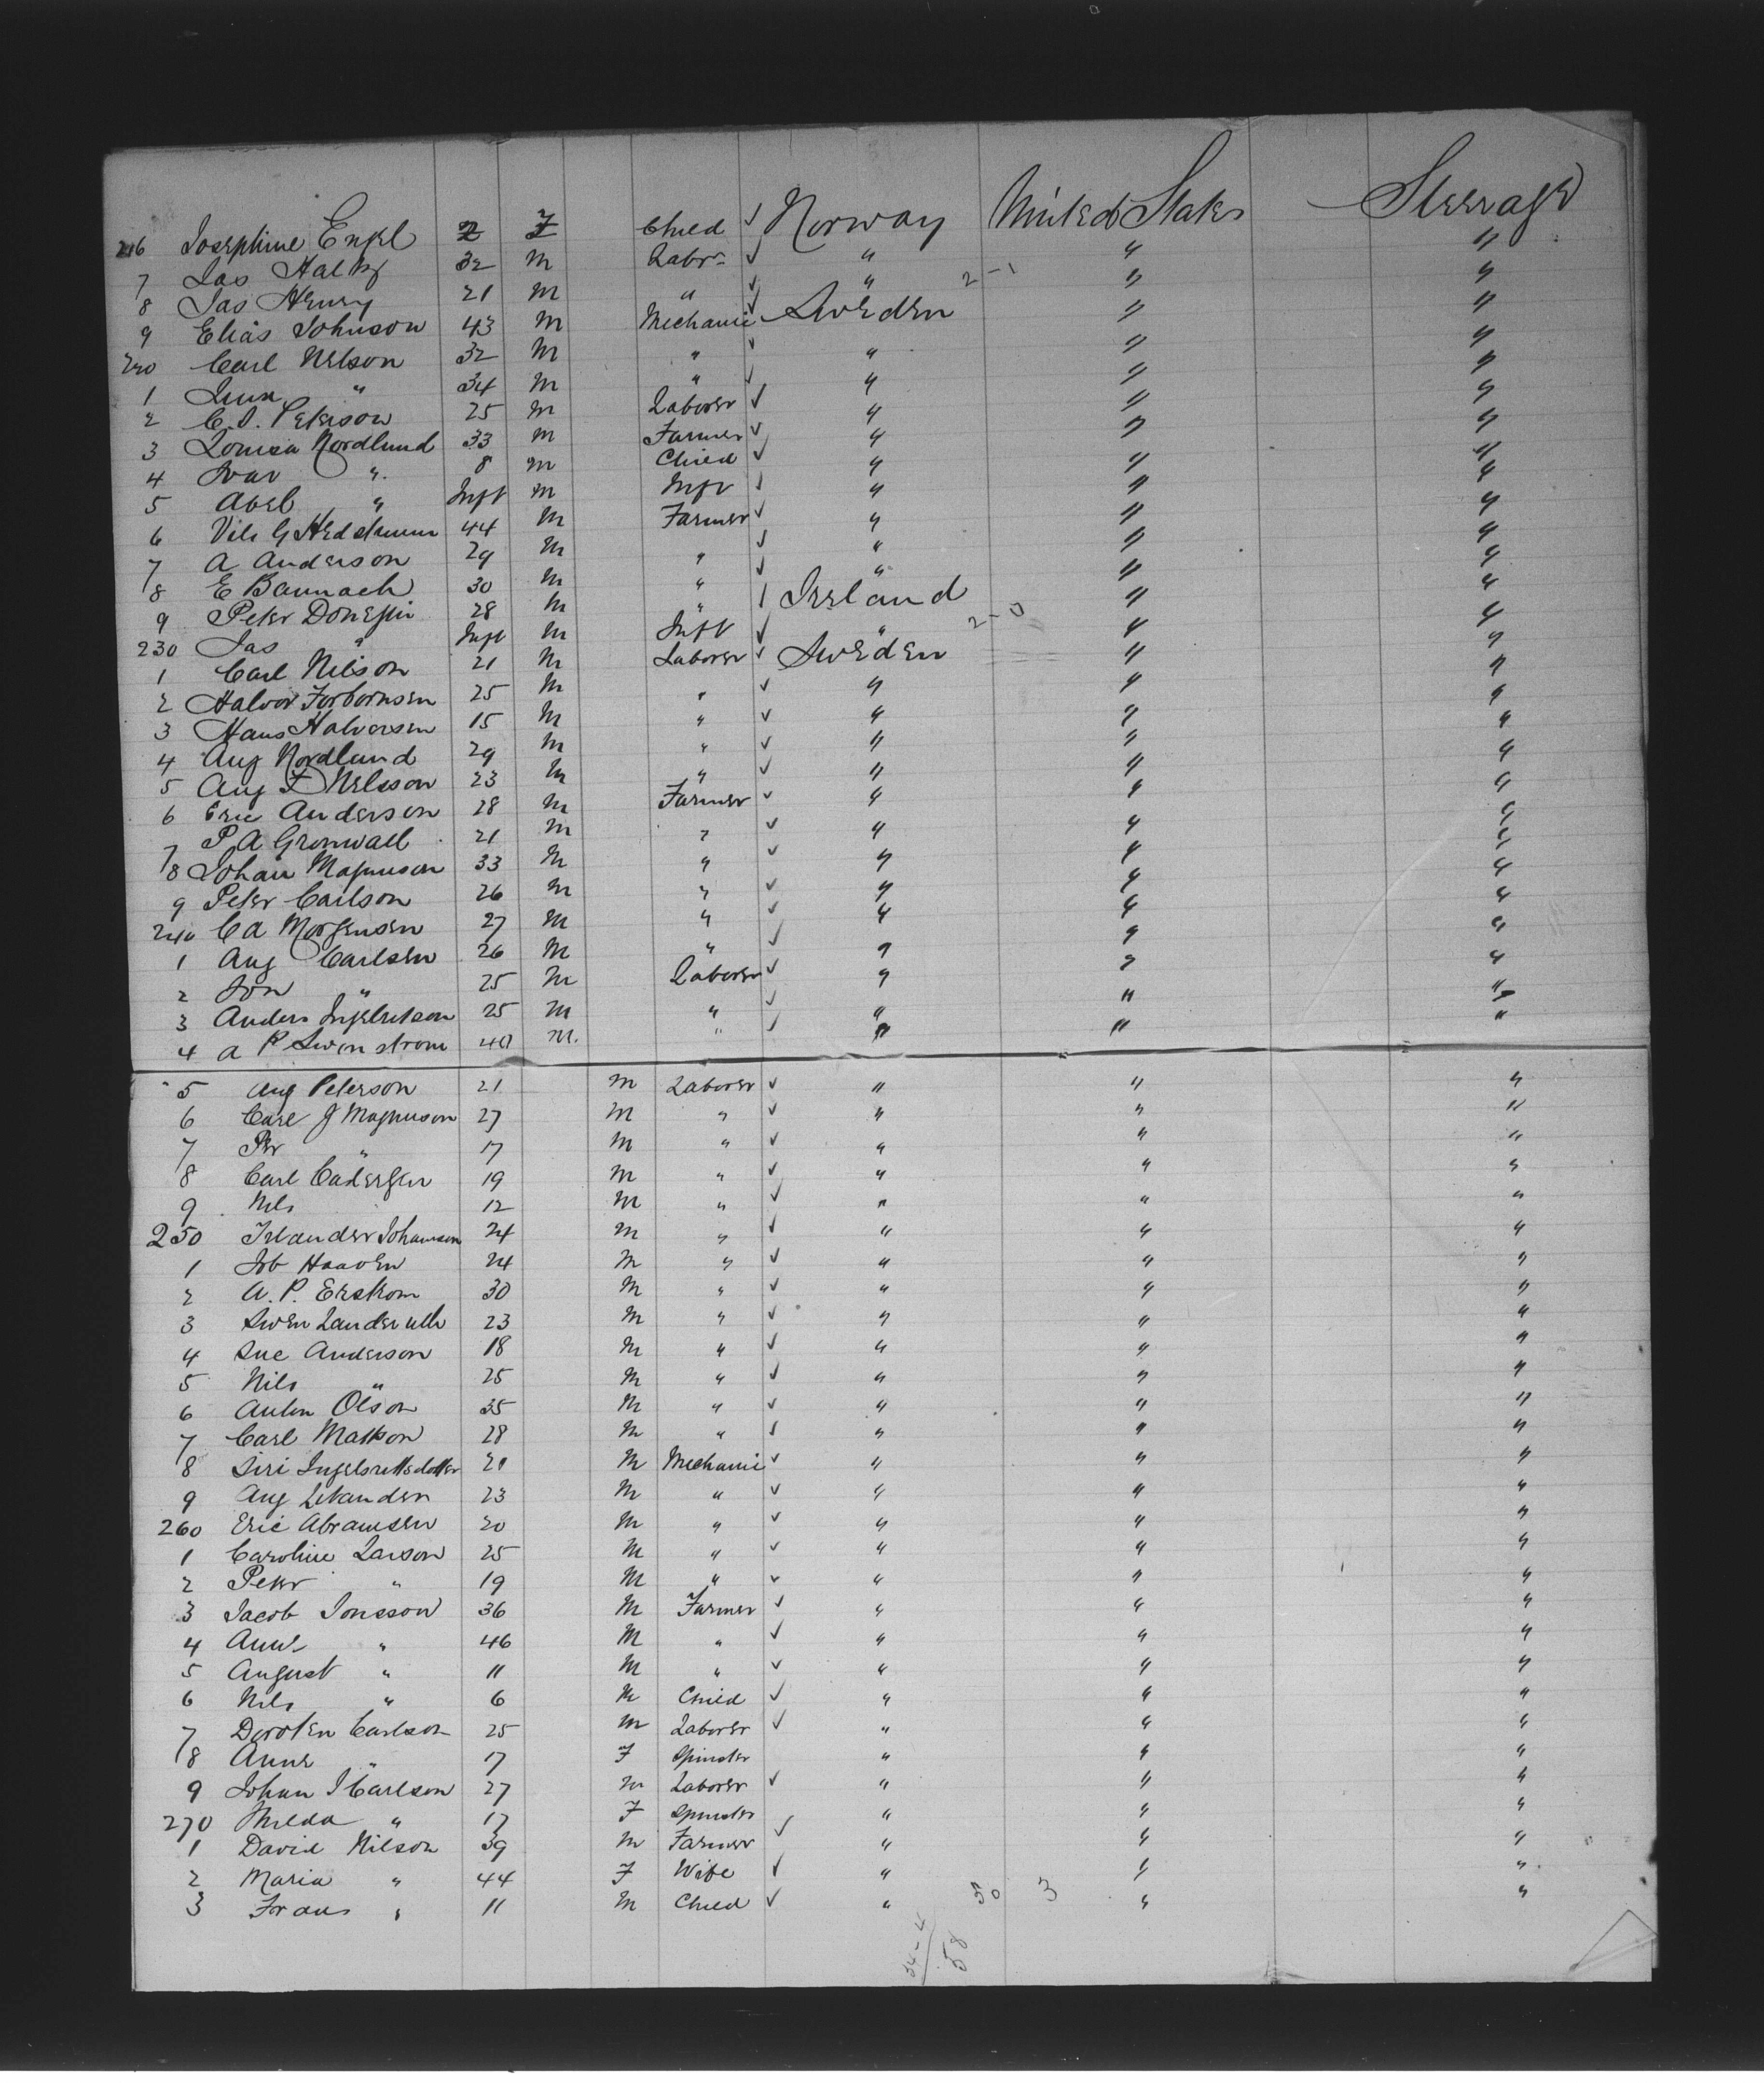 216 Josephine Engel 2 F Child ✓ Norway United States Steerage
7 Jas Halky 32 M Labr ✓ " " "
8 Jas Henry 21 M " ✓ " 2-1 " "
9 Elias Johnson 43 M Mechanic ✓ Sweden " "
220 Carl Nelson 32 M " ✓ " " "
1 " 34 M " ✓ " " "
2 C. J. Peterson 25 M Laborer ✓ " " "
3 Louisa Nordlund 33 M Farmer ✓ " " "
4 Ivar " 8 M Child ✓ " " "
5 Abel " Inft M Inft ✓ " " "
6 G 44 M Farmer ✓ " " "
7 A Anderson 29 M " ✓ " " "
8 E Bannach 30 M " ✓ " " "
9 Peter 28 M " Ireland " "
230 Jas " Inft M Inft ✓ " " "
1 Carl Nilson 21 M Laborer ✓ Sweden " "
2 Halvor Torbornsen 25 M " ✓ " " "
3 Hans Halversen 15 M " ✓ " " "
4 Aug Nordlund 29 M " ✓ " " "
5 Aug F Nelsson 23 M " ✓ " " "
6 Eric Anderson 28 M Farmer ✓ " " "
7 P A Gronwall 21 M " ✓ " " "
8 Johan Magnuson 33 M " ✓ " " "
9 Peter Carlson 26 M " ✓ " " "
240 C A Morgensen 27 M " ✓ " " "
1 Aug Carlsen 26 M " ✓ " " "
2 Jon " 25 M Laborer ✓ " " "
3 Anders Ingebretson 25 M " ✓ " " "
4 A P Swenstrom 40 M. " ✓ " " "
5 Aug Peterson 21 M Laborer ✓ " " "
6 Carl J Magnuson 27 M " ✓ " " "
7 Per " 17 M " ✓ " " "
8 Carl 19 M " ✓ " " "
9 Nils 12 M " ✓ " " "
250 Johannson 24 M " ✓ " " "
1 Job Haaven 24 M " ✓ " " "
2 A. P. Erstrom 30 M " ✓ " " "
3 Swen 23 M " ✓ " " "
4 Anderson 18 M " ✓ " " "
5 Nils " 25 M " ✓ " " "
6 Anton Olson 35 M " ✓ " " "
7 Carl Matson 28 M " ✓ " " "
8 Siri Ingebrettsdotter 21 M Mechanic ✓ " " "
9 Aug 23 M " ✓ " " "
260 Eric Abramsen 20 M " ✓ " " "
1 Caroline Larson 25 M " ✓ " " "
2 Peter " 19 M " ✓ " " "
3 Jacob Jonsson 36 M Farmer ✓ " " "
4 Anne " 46 M " ✓ " " "
5 August " 11 M " ✓ " " "
6 Nils " 6 M Child ✓ " " "
7 Carlson 25 M Laborer ✓ " " "
8 Anne " 17 F Spinster " " "
9 Johan J Carlson 27 M Laborer ✓ " " "
270 " 17 F Spinster ✓ " " "
1 David Nilson 39 M Farmer " " "
2 Maria " 44 F Wife ✓ " " "
3 Frans " 11 M Child ✓ " 50 3 " "
54-4
58